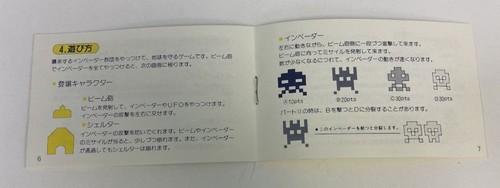 4.遊び方
襲来するインベーダー軍団をやっつけて、地球を守るゲームです。ビーム砲
でインベーダーを全てやっつけると、次の画面に移ります。
登場キャラクター
ビーム砲
ビームを発射して、インベーダーやUFOをやっつけます。
インベーダーの攻撃を左右に交せます。
シェルター
インベーダーの攻撃を防いでくれます。ビームやインベーダー
のミサイルが当ると、少しづつ崩れます。また、インベーダー
が通過してもシェルターは崩れます。
6
インベーダー
左右に動きながら、ビーム砲側に一段づつ進撃して来ます。
ビーム砲に向ってミサイルを発射して来ます。
数が少なくなるにつれて、インベーダーの動きが速くなります。
Ⓐ10pts
Ⓑ20pts
Ⓒ30pts
Ⓓ30pts
パートⅡの時は、Bを撃つとDに分裂することがあります。
このインベーダーを撃つと分裂します。
7